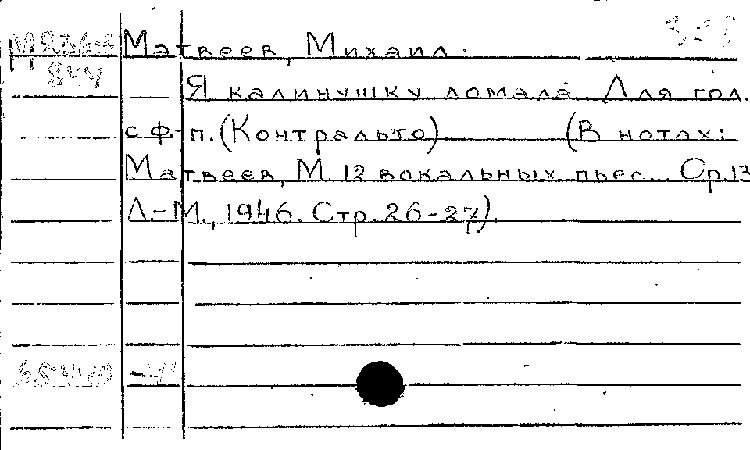 Матвеев, Михаил.
Я калинушку ломала. Для гол.
с ф.-п. (Контральто) (В нотах:
Матвеев, М. 12 вокальных пьес. Ор.13
Л.-М., 1946. Стр. 26-27).